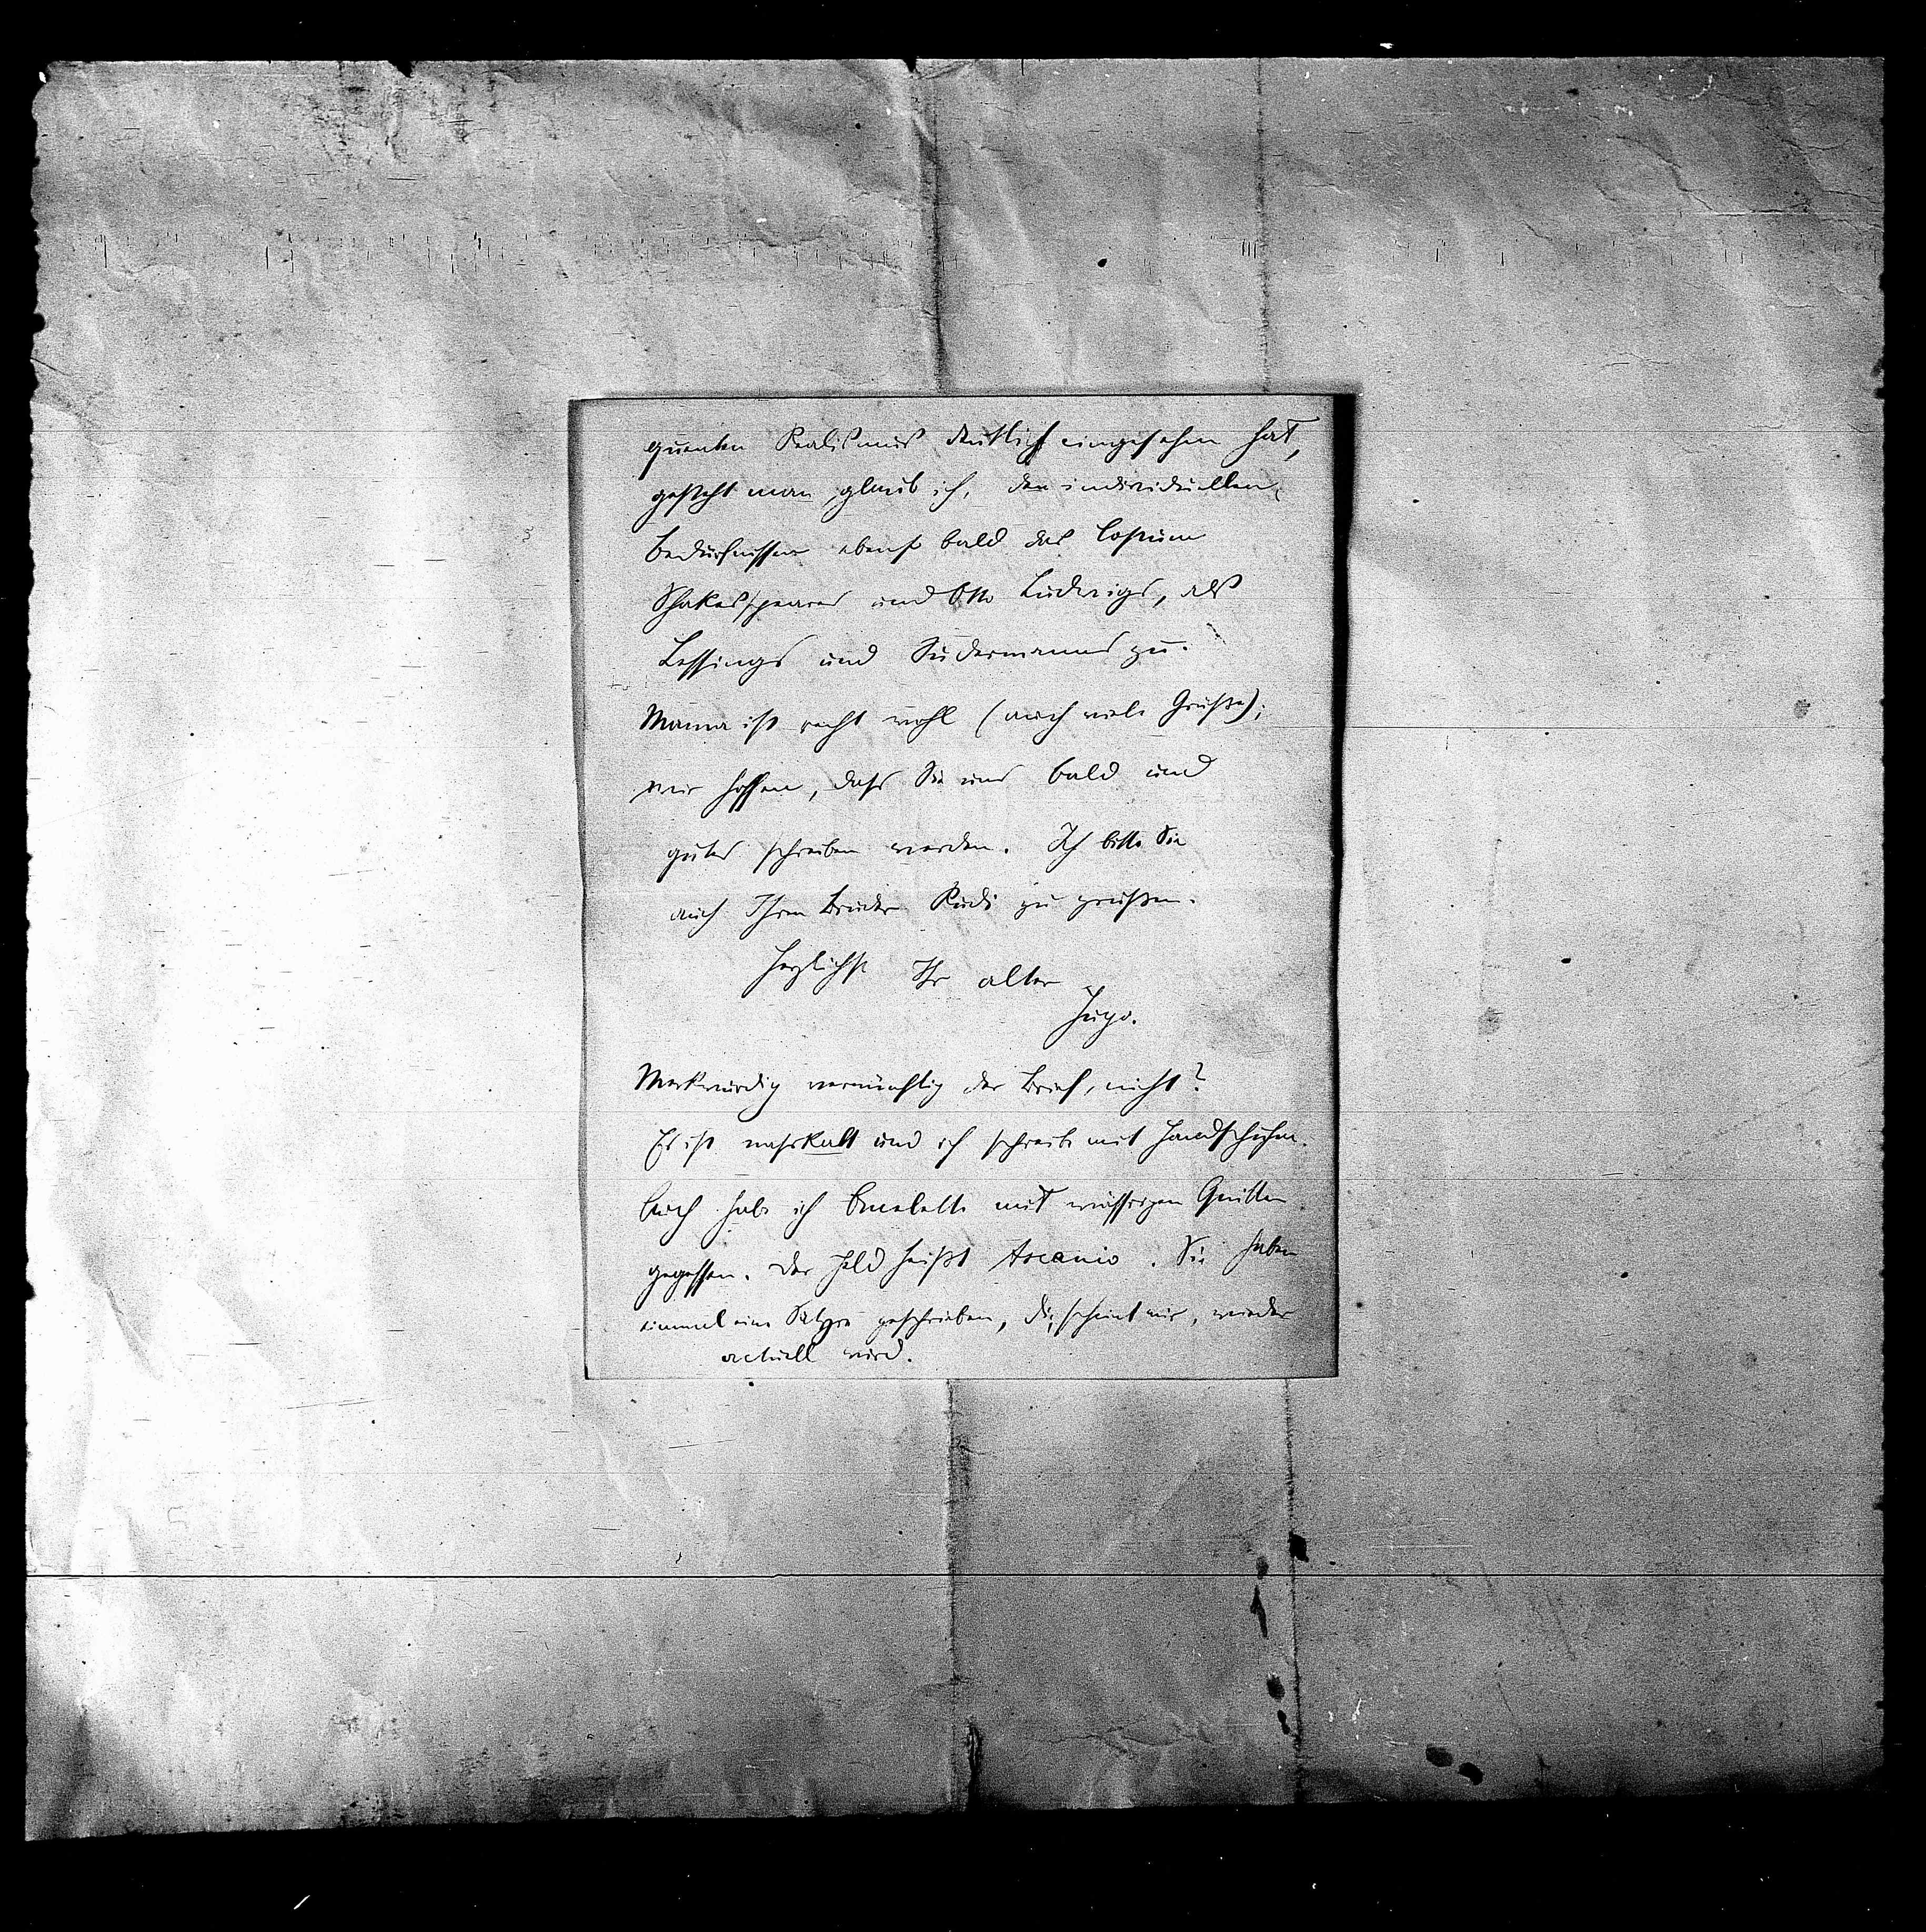 quenten Realismus deutlich eingesehen hat,
gesteht man, glaub ich, den individuellen
Bedürfnissen ebenso bald das Costüm
Shakespeares und Otto Ludwigs, als
Lessings und Sudermanns zu.
Mama ist recht wohl (auch viele Grüße);
wir hoffen, dass Sie uns bald und
gutes schreiben werden. Ich bitte Sie
auch Ihren Bruder Rudi zu grüßen.
Herzlichst Ihr alter
Hugo.
Merkwürdig vernünftig der Brief, nicht?
Es ist nasskalt und ich schreibe mit Handschuhen.
Auch habe ich Omelette mit wässrigen Quitten
gegessen. Der Held heißt Ascanio. Sie haben
einmal eine Satyre geschrieben, die, scheint mir, wieder
actuell wird.